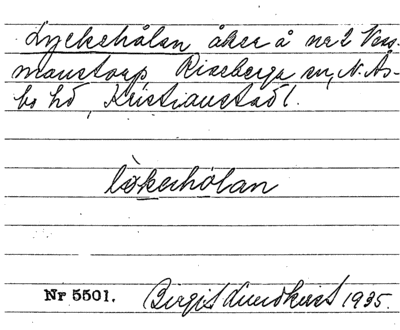 Lyckehålan åker å nr 2 Väs-
manstorp Riseberga sn, N. Ås-
bo hd, Kristianstad l.
lỳkehòlan
Nr 5501. Birgit Lundkvist 1935.